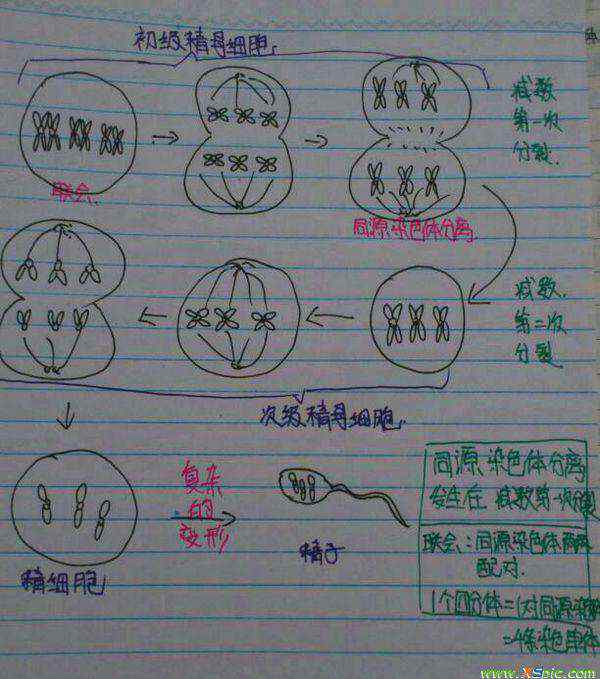 初级精母细胞
减数
第一次
分裂
联会
同源染色体分离
减数
第二次
分裂
次级精母细胞
精细胞
复杂
的
变形
精子
同源染色体分离
发生在减数第一次分裂
联会:同源染色体两两
配对.
1个四分体=1对同源染色体
=4条染色单体
www.XSpic.com